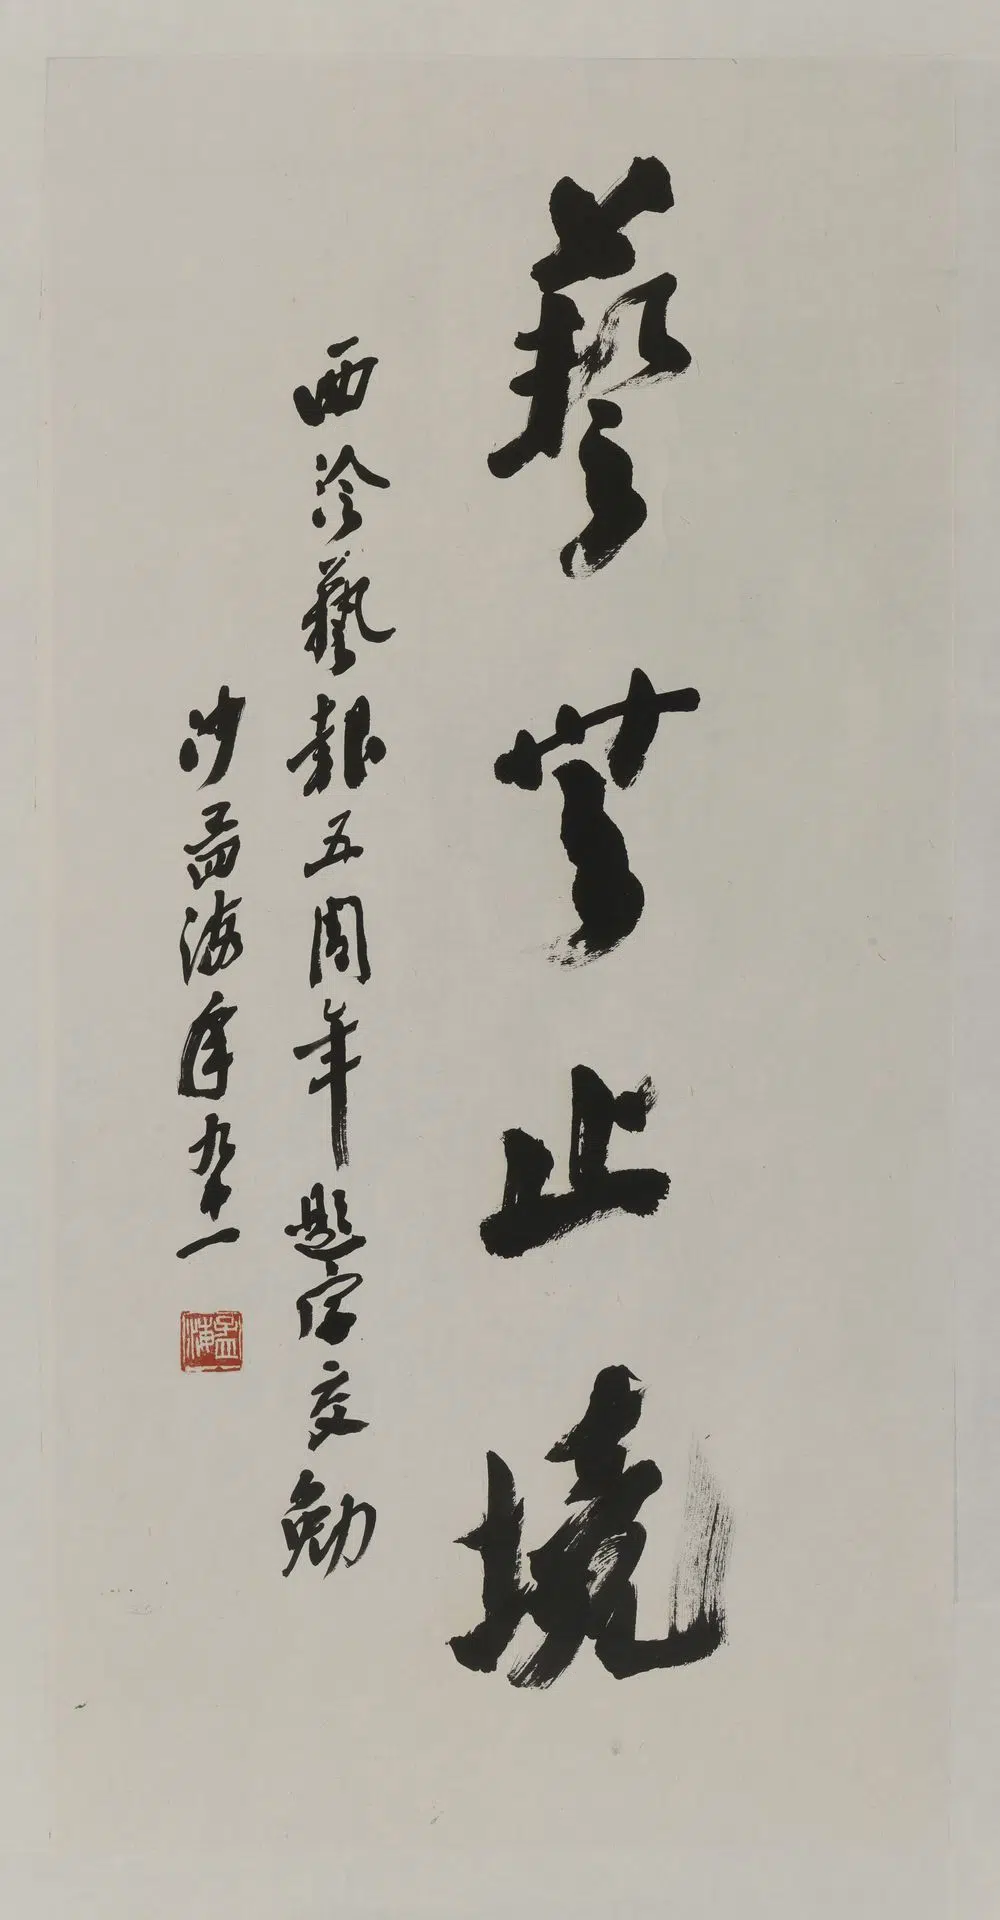 藝無止境
西泠藝報五周年題字交勉
沙孟海年九十一
孟海